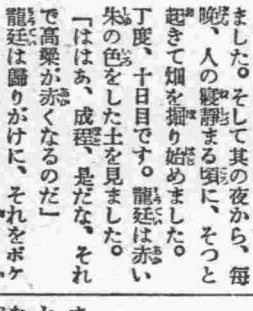 ました。そして其の夜から、毎
晩、人の寢靜まる頃に、そつと
起きて畑を掘り始めました。
丁度、十日目です。龍廷は赤い
朱の色をした土を見ました。
「ははあ、成程、是だな、それ
で高粱が赤くなるのだ」
龍廷は歸りがけに、それをポケ